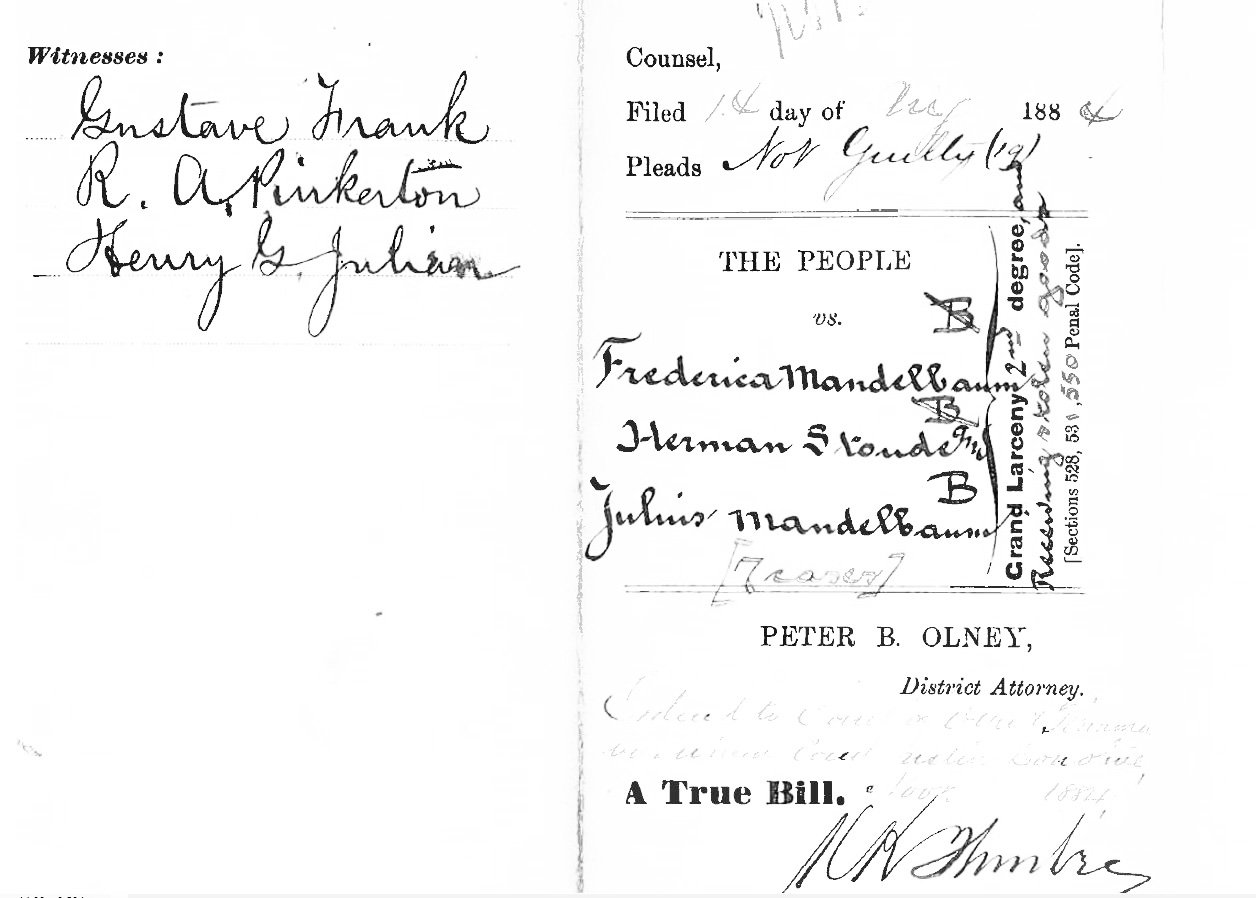 Witnesses :
Gustave Frank
R. A. Pinkerton
Henry G. Julian
Counsel,
Filed 14 day of Aug 1884
Pleads Not Guilty (19)
THE PEOPLE
vs.
B
Frederica Mandelbaum
B
Herman Stoude
B
Julius Mandelbaum
Grand Larceny 2nd degree, and
Receiving stolen goods
[Sections 528, 531, 550 Penal Code].
PETER B. OLNEY,
District Attorney.
to Court
Court
A True Bill.
1884